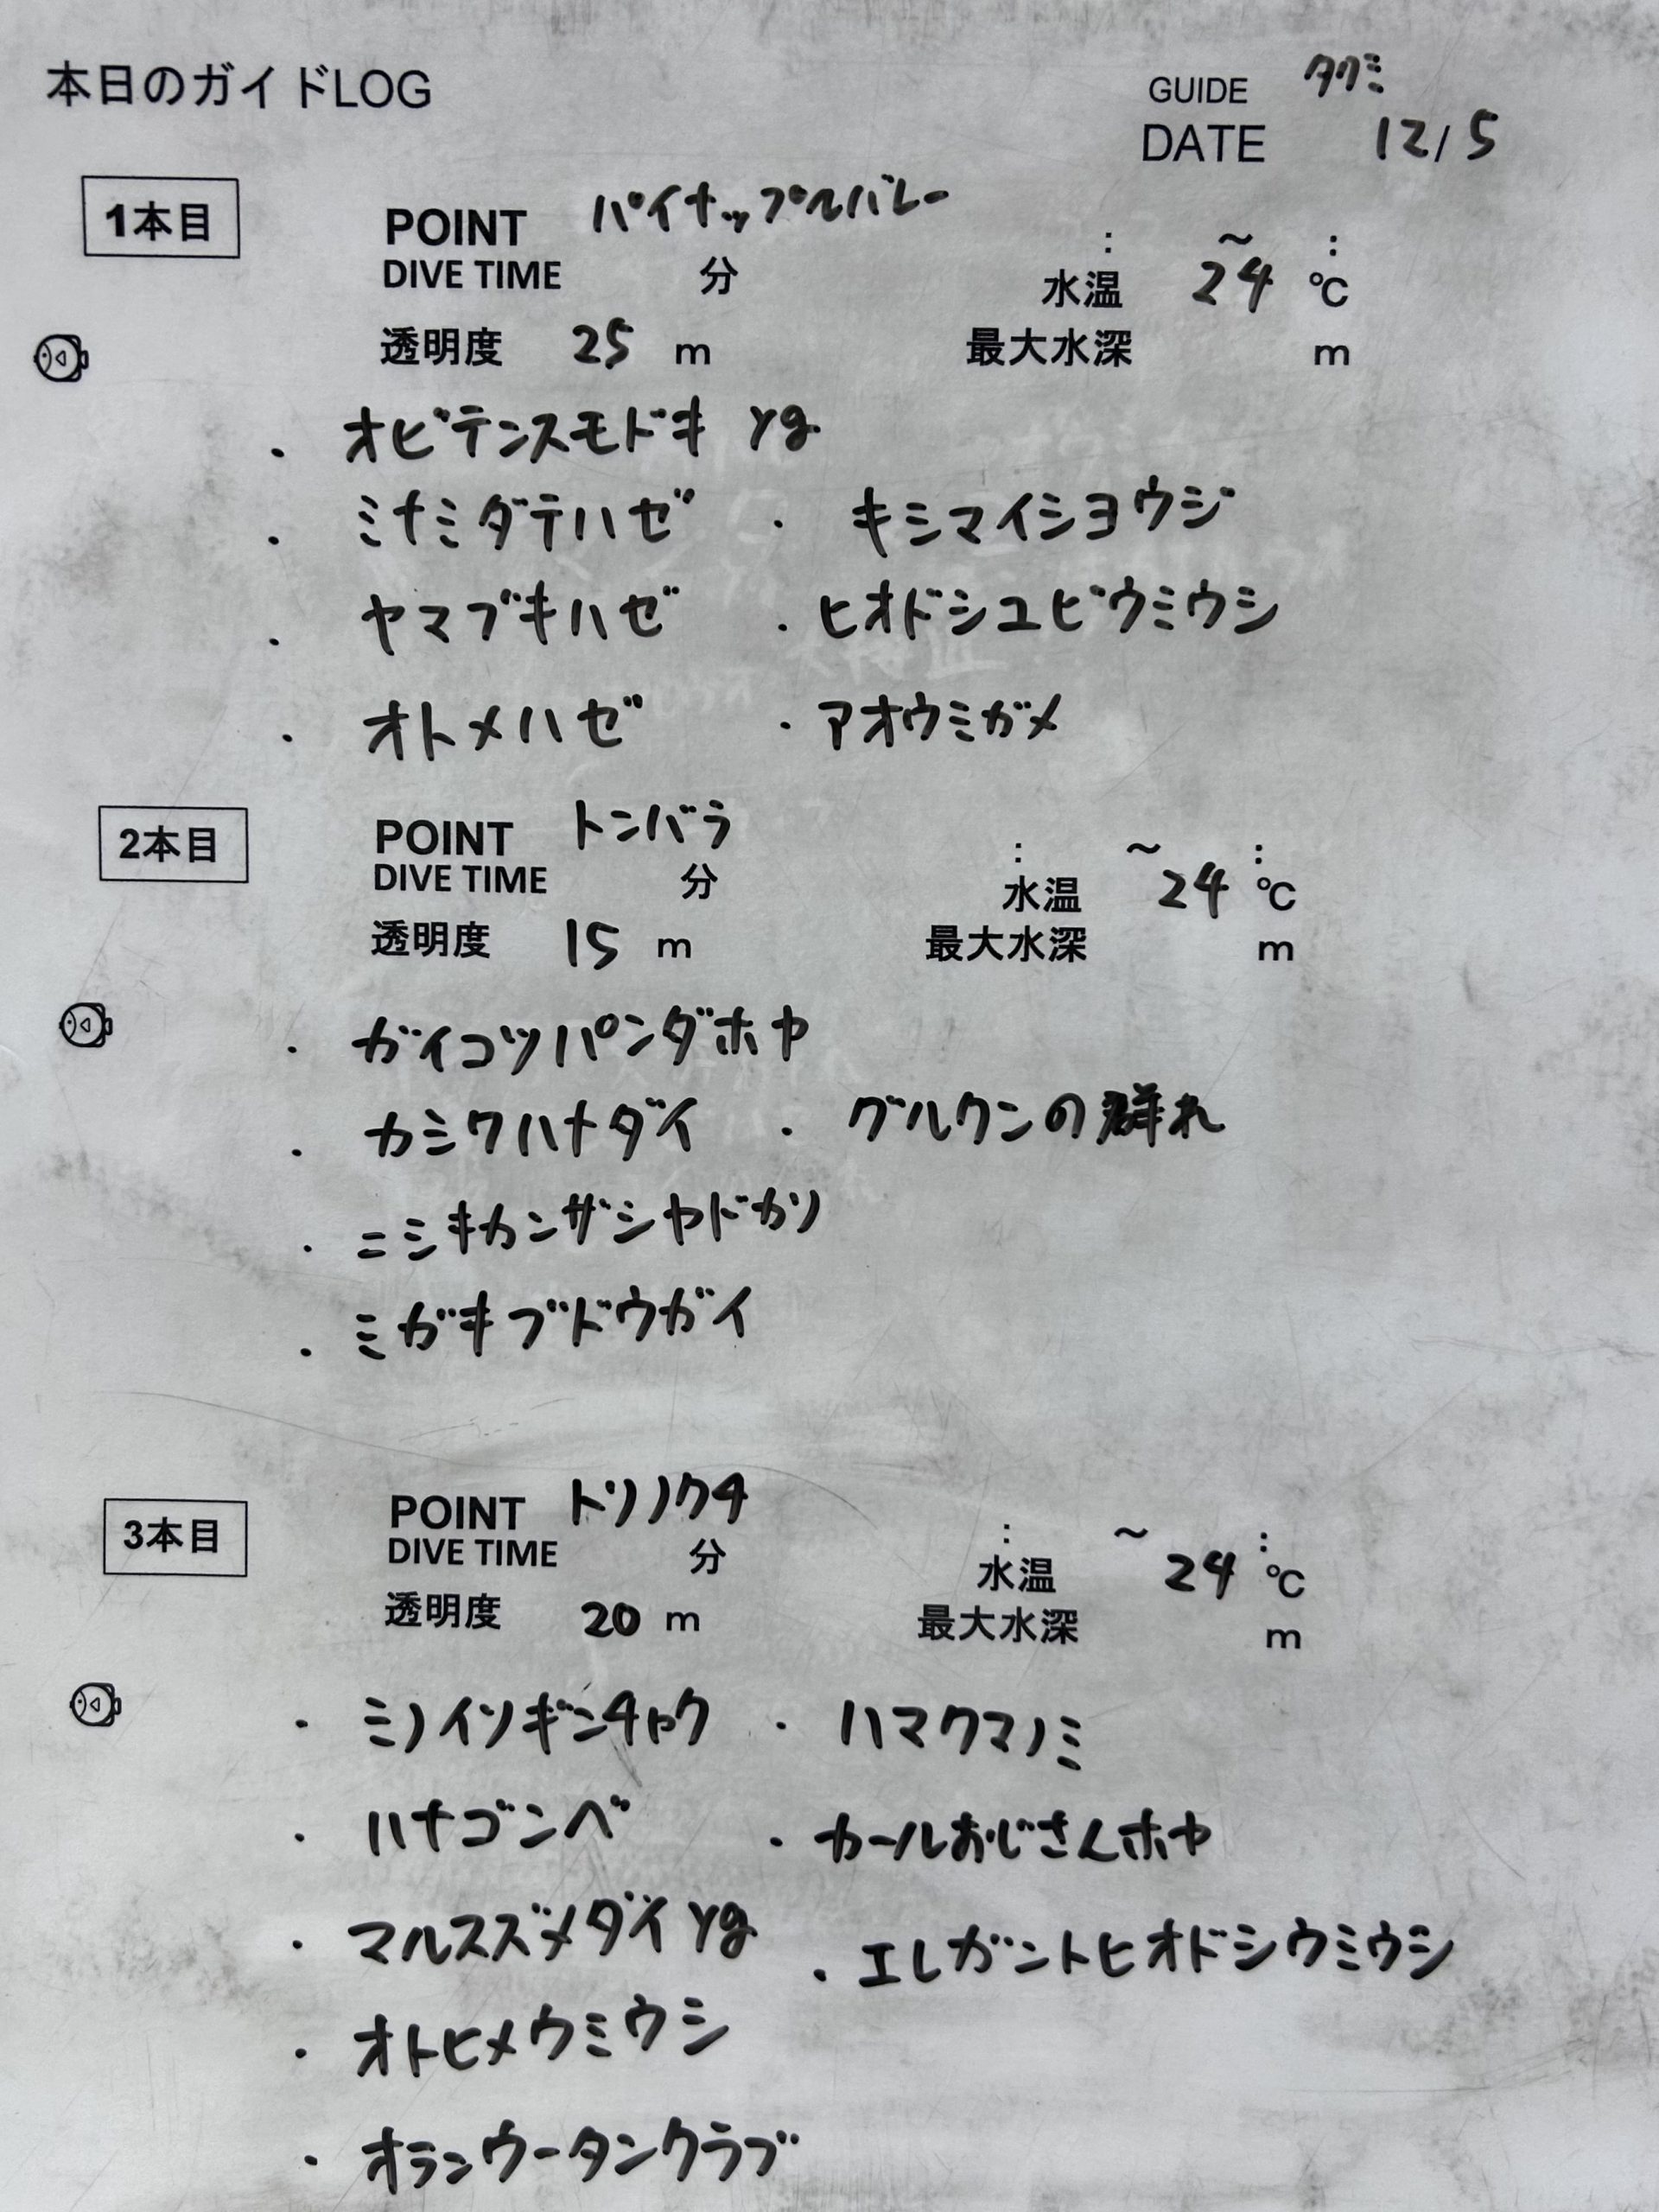 本日のガイドLOG
GUIDE タクミ
DATE 12/5
1本目
POINT パイナップルバレー
: ～ :
DIVE TIME 分
水温 24 ℃
透明度 25 m
最大水深 m
・オビテンスモドキ yg
・ミナミダテハゼ ・キシマイシヨウジ
・ヤマブキハゼ ・ヒオドシユビウミウシ
・オトメハゼ ・アオウミガメ
2本目
POINT トンバラ
: ～ :
DIVE TIME 分
水温 24 ℃
透明度 15 m
最大水深 m
・ガイコツパンダホヤ
・カシワハナダイ ・グルクンの群れ
・ニシキカンザシヤドカリ
・ミガキブドウガイ
3本目
POINT トリノクチ
: ～ :
DIVE TIME 分
水温 24 ℃
透明度 20 m
最大水深 m
・ミノイソギンチャク ・ハマクマノミ
・ハナゴンベ ・カールおじさんホヤ
・マルスズメダイ yg ・エレガントヒオドシウミウシ
・オトヒメウミウシ
・オランウータンクラブ